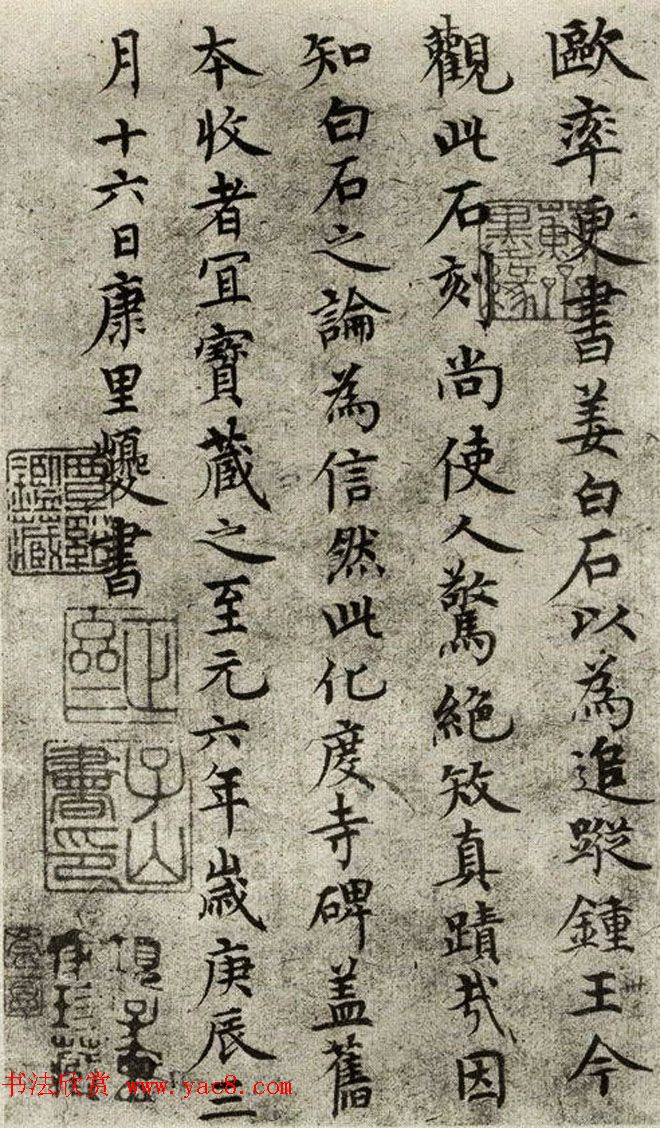 歐率更書姜白石以為追蹤鍾王今
觀此石刻尚使人驚絕矧真蹟哉因
知白石之論為信然此化度寺碑蓋舊
本收者宜寶藏之至元六年歲庚辰二
月十六日康里巙書
正齋
子山書印
書法欣赏 www.yac8.com